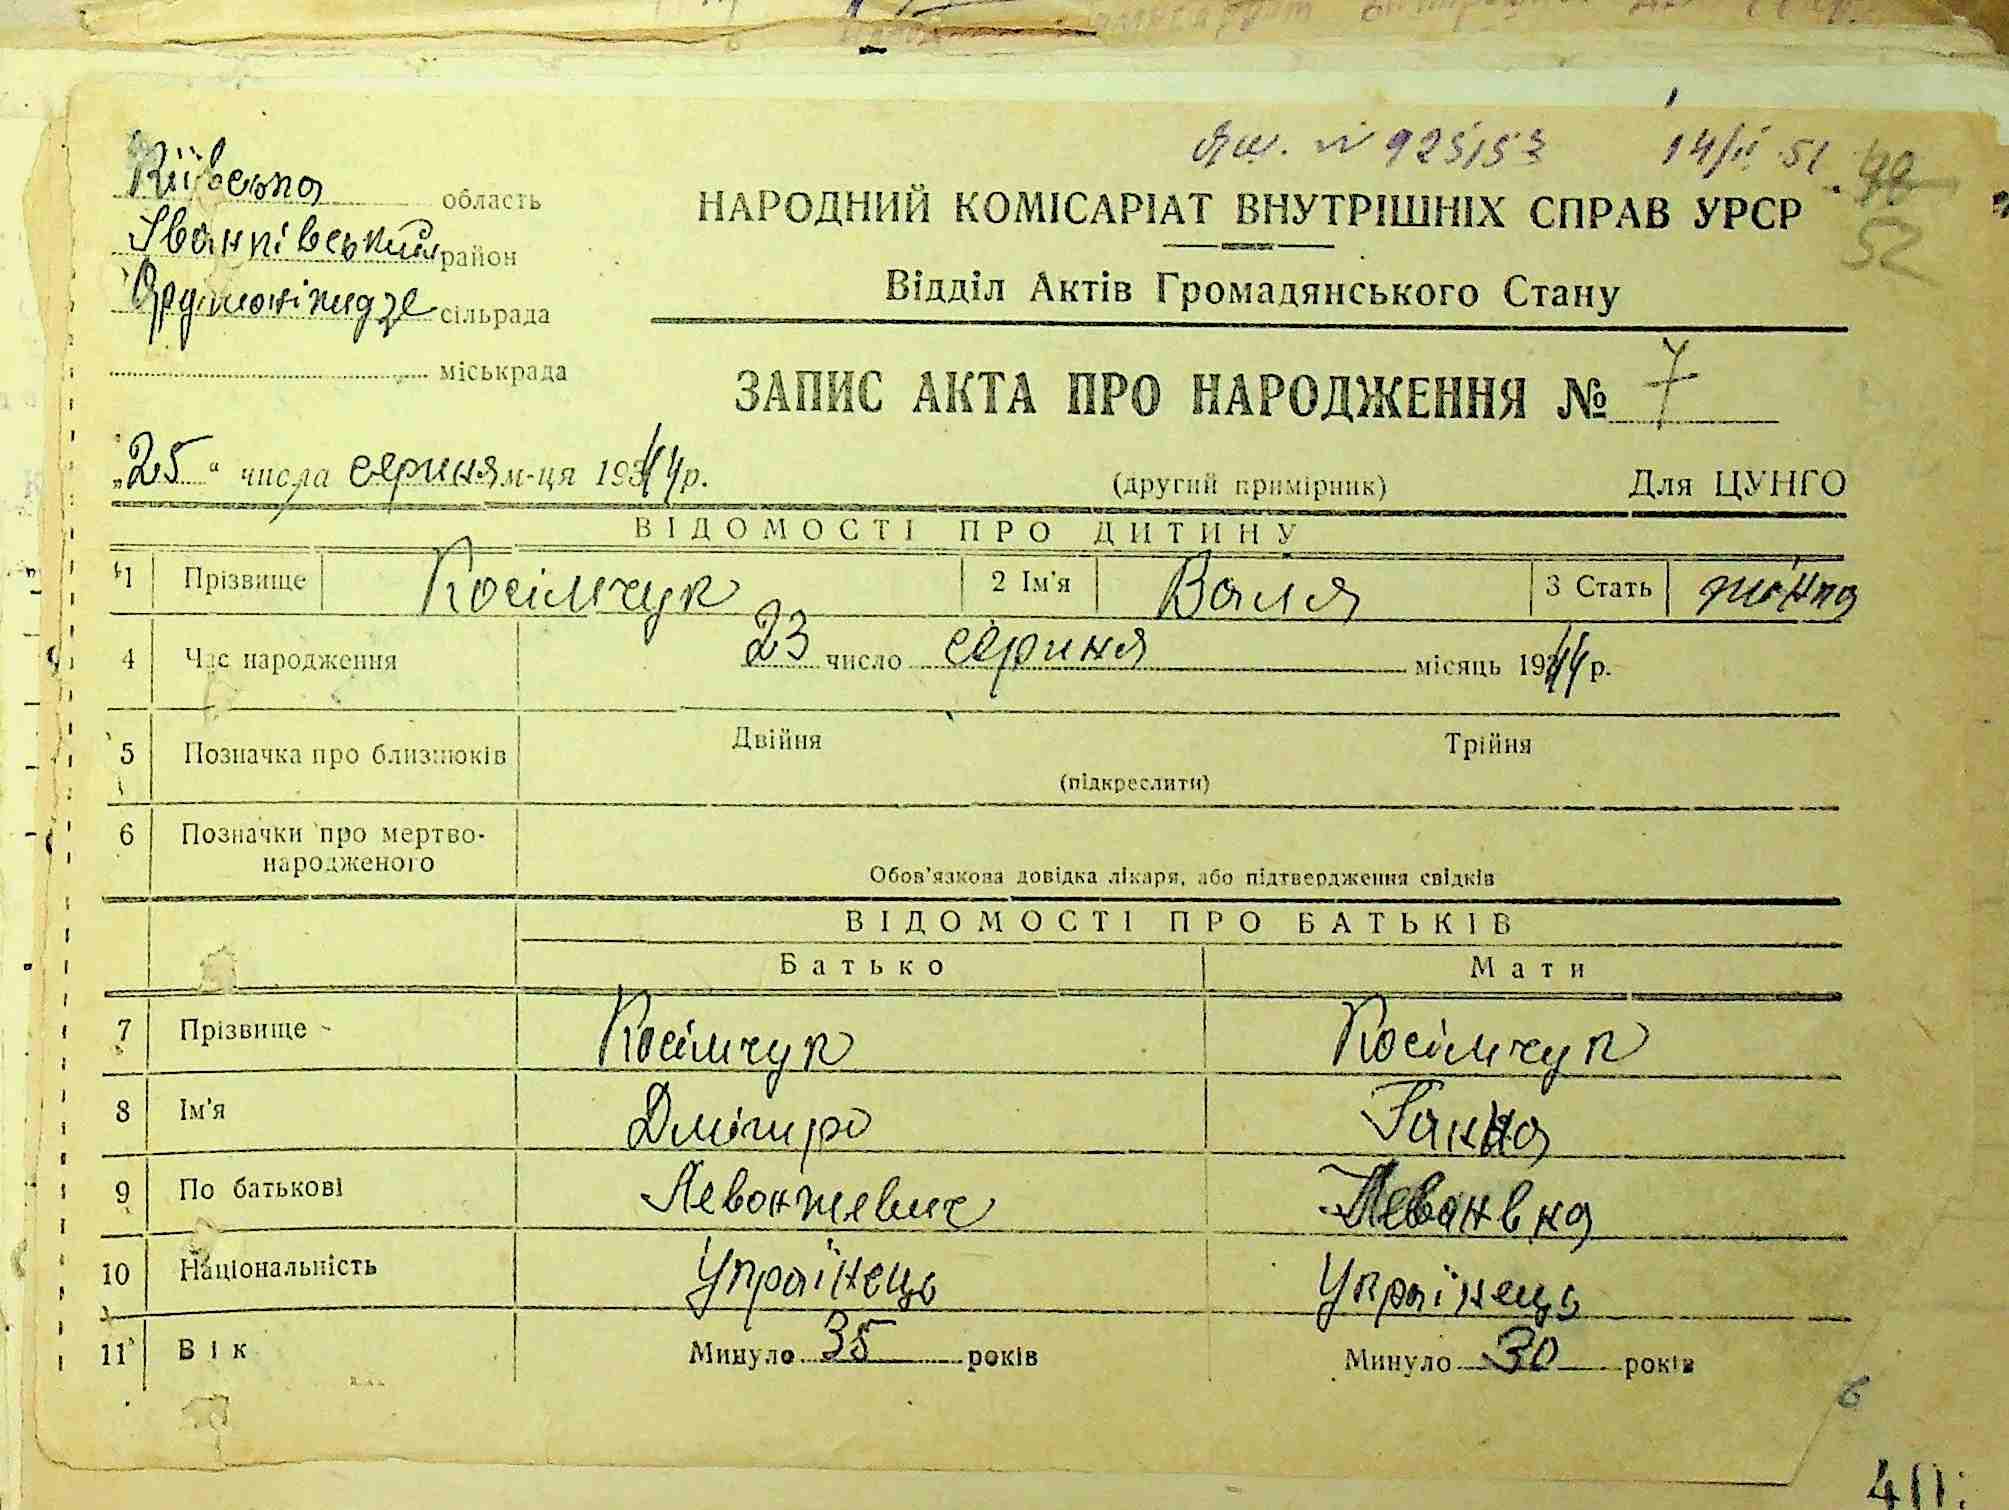 14/II 51
Київська область
52
НАРОДНИЙ КОМІСАРІАТ ВНУТРІШНІХ СПРАВ УРСР
Іванківський район
Відділ Актів Громадянського Стану
Оружонікидзе сільрада
міськрада
ЗАПИС АКТА ПРО НАРОДЖЕННЯ № 7
„25“ числа серпня м-ця 1944 р.
(другий примірник) Для ЦУНГО
ВІДОМОСТІ ПРО ДИТИНУ
1 Прізвище Косімчук 2 Ім'я Валя 3 Стать жінка
4 Час народження 23 число серпня місяць 1944 р.
5 Позначка про близнюків Двійня Трійня
(підкреслити)
6 Позначки про мертво-
народженого
Обов'язкова довідка лікаря, або підтвердження свідків
ВІДОМОСТІ ПРО БАТЬКІВ
Батько Мати
7 Прізвище Косімчук Косімчук
8 Ім'я Дмітро Ганна
9 По батькові Левонтевич Леванвна
10 Національність Українець Українець
11 Вік Минуло 35 років Минуло 30 років
6
40